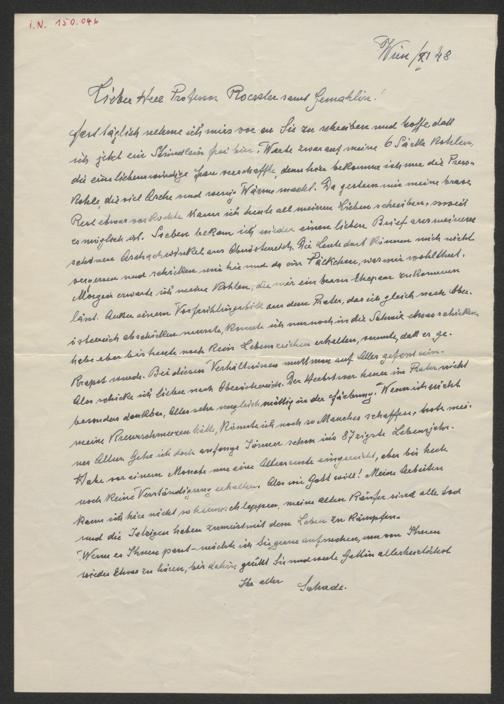 I.N. 150.046
Wien /XI 48
Lieber Herr Professor Roessler samt Gemahlin!
Fast täglich nehme ich mir vor an Sie zu schreiben und hoffe, daß
ich jetzt ein Stündlein frei bin. Warte zwar auf meine 6 Säcke Kohlen,
die eine liebenswürdige Frau verschaffte, denn hier bekomme ich nur die Press-
Kohle, die viel Asche und wenig Wärme macht. Da gestern mir meine brave
Resi etwas vorkochte kann ich heute all meinen Lieben schreiben, soweit
es möglich ist. Soeben bekam ich wieder einen lieben Brief aus meinem
schönen aus Oberösterreich. Die Leute dort können mich nicht
vergessen und schicken mir hie und da ein Päckchen, was mir wohltut.
Morgen erwarte ich meine Kohlen, die mir ein braves Ehepaar zukommen
läßt. Außer einem Vorfrühlingsbild aus dem Prater, das ich gleich nach Ober-
österreich abschicken mußte, konnte ich nur noch in die Schweiz etwas schicken
habe aber bis heute noch kein Lebenszeichen erhalten, vermute, daß er ge-
kapst wurde. Bei diesen Verhältnissen muß man auf Alles gefaßt sein.
Also schicke ich lieber nach Oberösterreich. Der Herbst war heuer im Prater nicht
besonders dankbar, Alles sehr ungleichmäßig in der Färbung. Wenn ich nicht
meine hätte, könnte ich noch so Manches schaffen, trotz mei-
nes Alters. Gehe ich doch anfangs Jänner schon ins 87zigste Lebensjahr.
Habe vor einem Monate um eine Altersrente eingereicht, aber bis heute
noch keine Verständigung erhalten. Also wie Gott will! Meine Arbeiten
kann ich hier nicht so herumschleppen, meine alten Käufer sind alle tod
und die Jetzigen haben zumeist mit dem Leben zu kämpfen.
Wenn es Ihnen passt – möchte ich Sie gerne aufsuchen, um von Ihnen
wieder Etwas zu hören, bis dahin grüßt Sie und werte Gattin allerherzlichst
Ihr alter